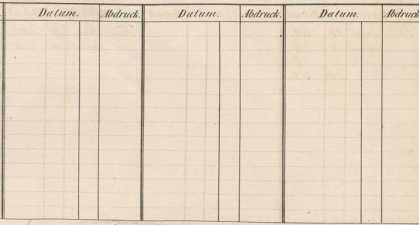 Datum. Abdruck. Datum. Abdruck. Datum. Abdruck.